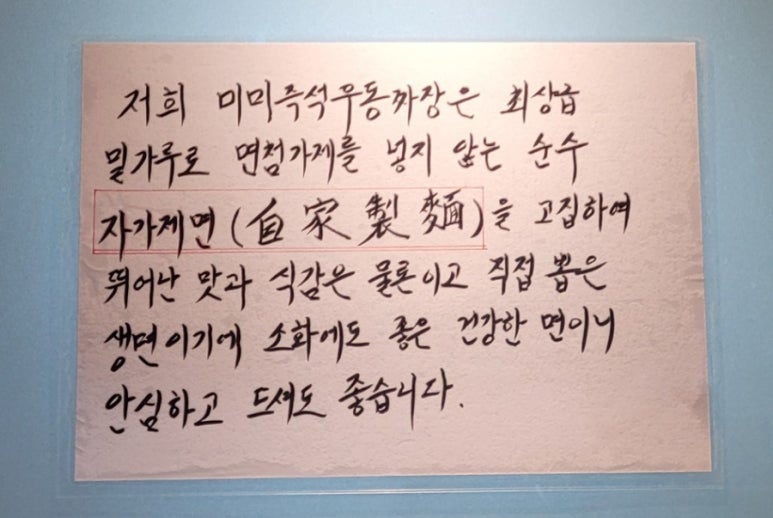 저희 미미즉석우동짜장은 최상급
밀가루로 면첨가제를 넣지 않는 순수
자가제면(自家製麵)을 고집하여
뛰어난 맛과 식감은 물론이고 직접 뽑은
생면이기에 소화에도 좋은 건강한 면이니
안심하고 드셔도 좋습니다.